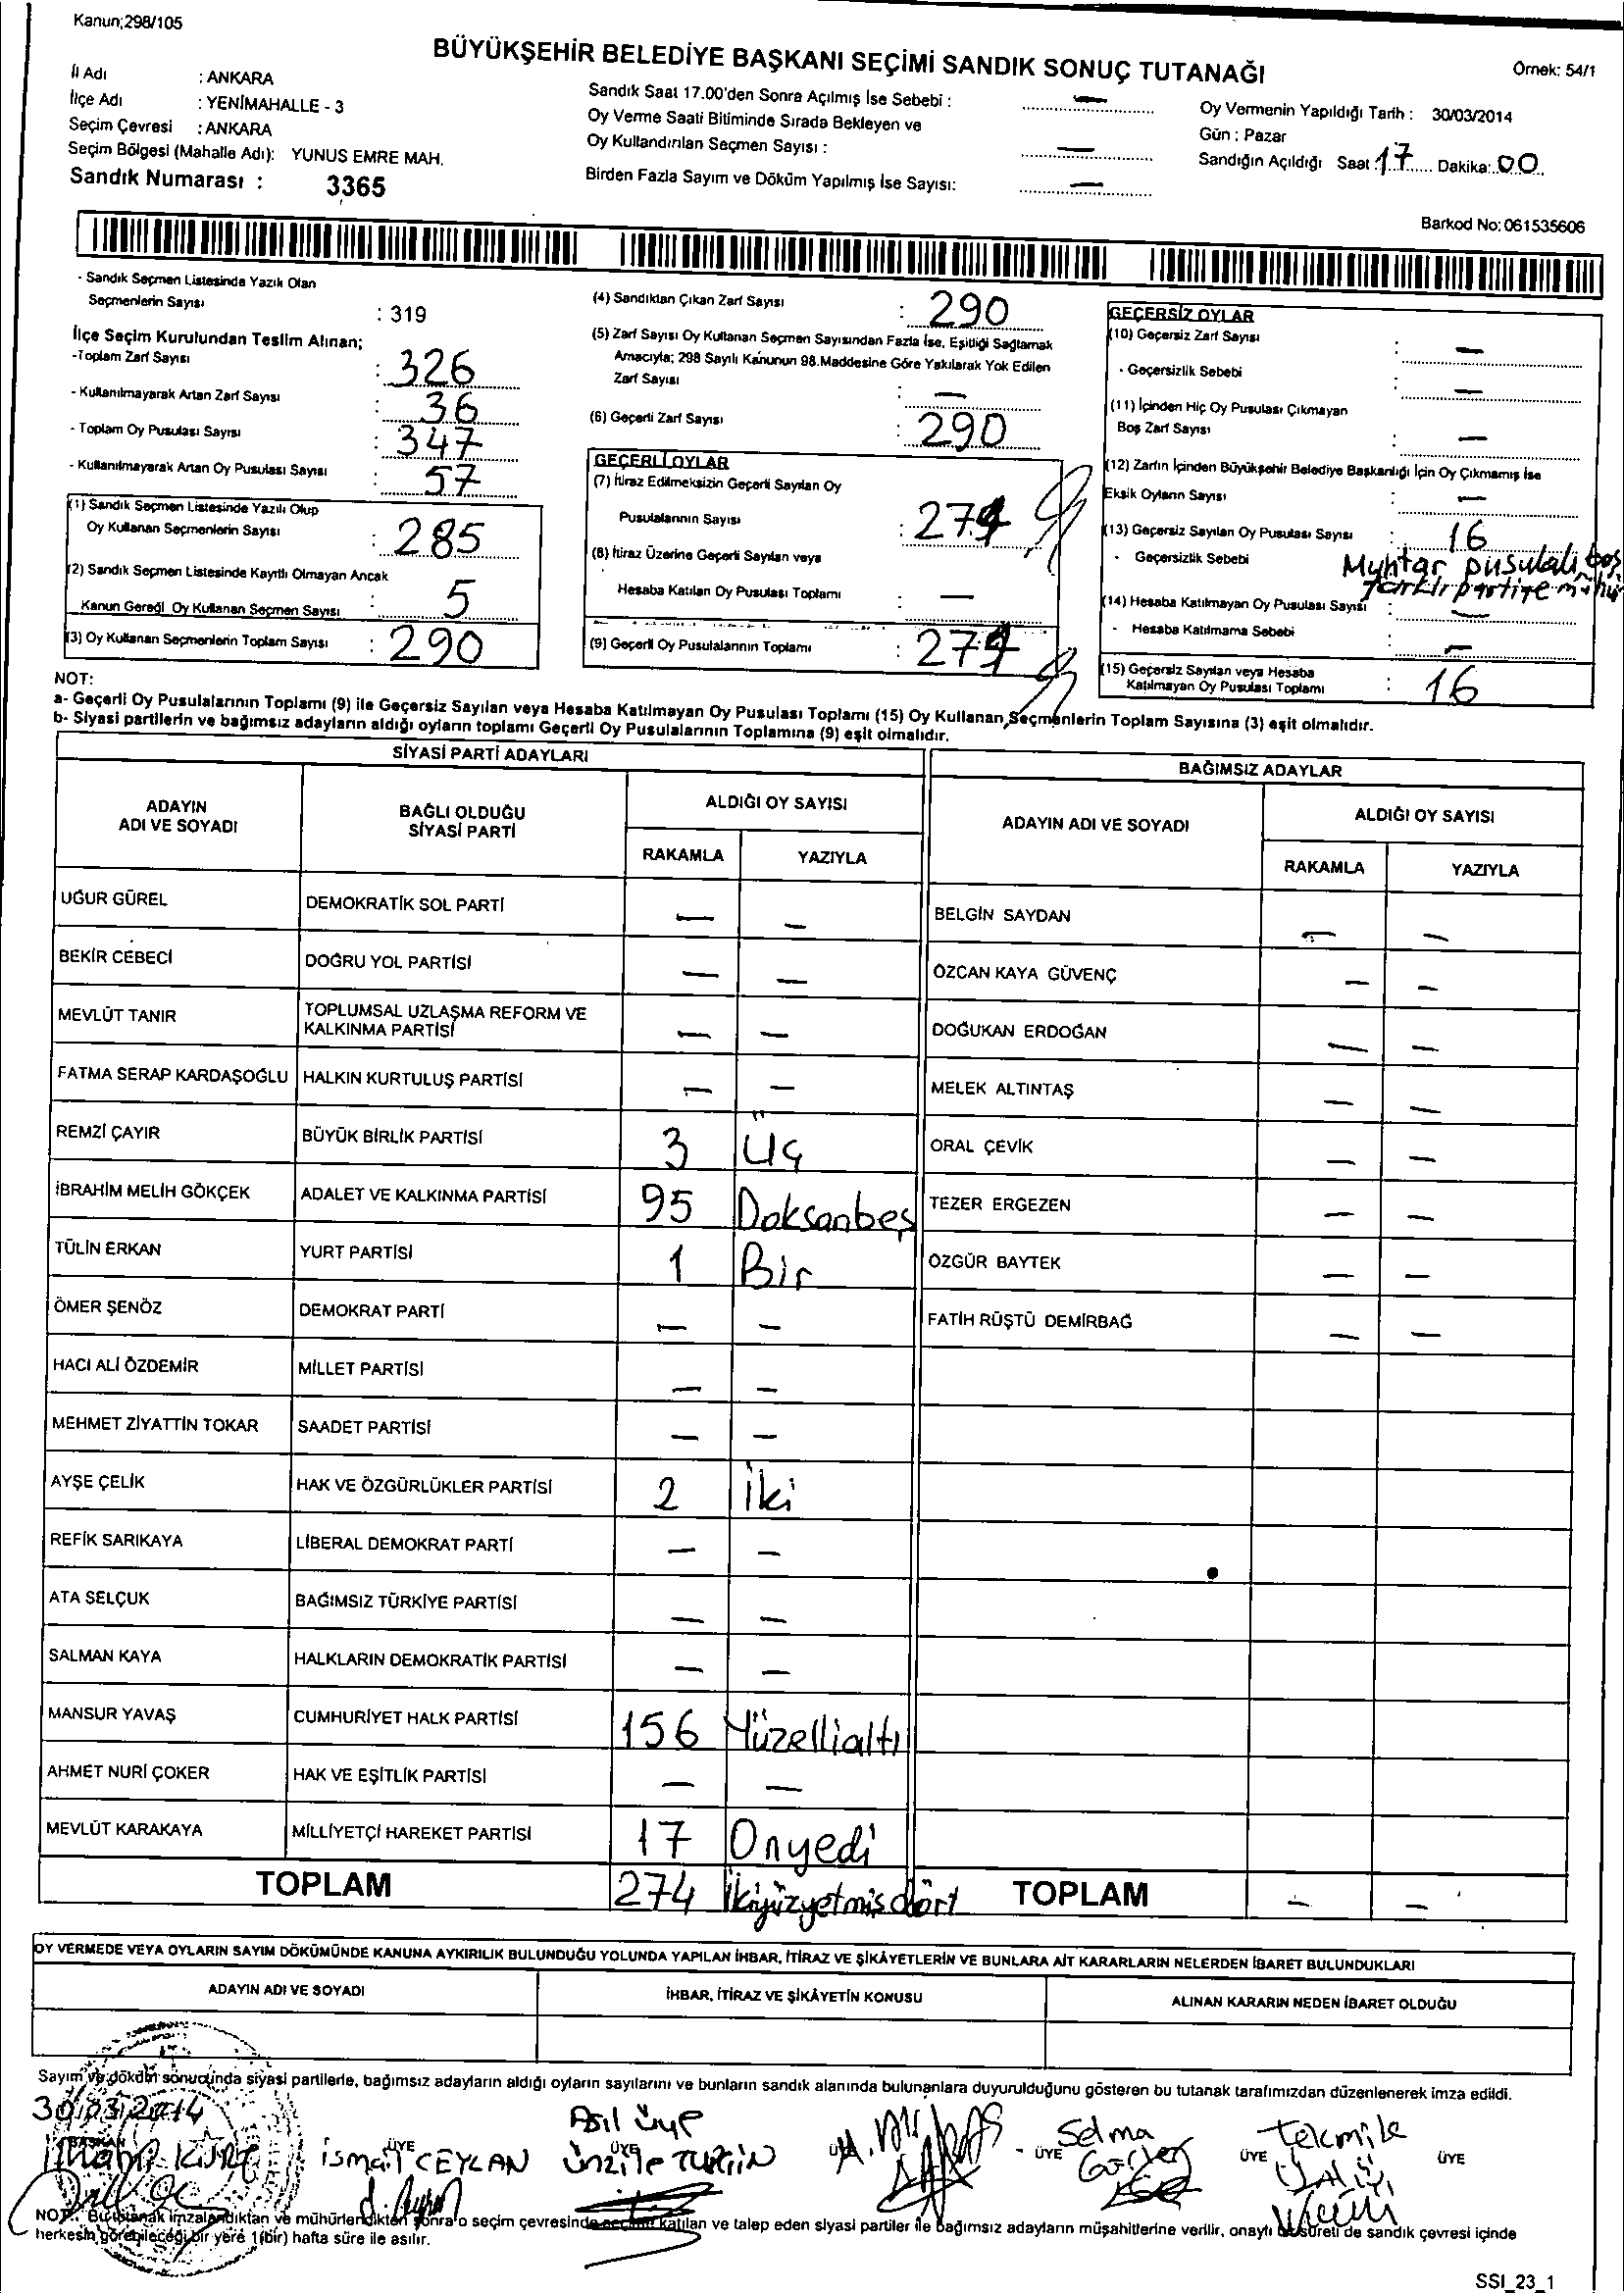 Kanun;298/105
BÜYÜKŞEHİR BELEDİYE BAŞKANI SEÇİMİ SANDIK SONUÇ TUTANAĞI
Örnek: 54/1
İl Adı : ANKARA
İlçe Adı : YENİMAHALLE - 3
Seçim Çevresi : ANKARA
Seçim Bölgesi (Mahalle Adı): YUNUS EMRE MAH.
Sandık Numarası : 3365
Sandık Saat 17.00'den Sonra Açılmış İse Sebebi : —
Oy Verme Saati Bitiminde Sırada Bekleyen ve
Oy Kullandırılan Seçmen Sayısı : —
Birden Fazla Sayım ve Döküm Yapılmış İse Sayısı: —
Oy Vermenin Yapıldığı Tarih : 30/03/2014
Gün : Pazar
Sandığın Açıldığı Saat : 17 Dakika: 00
Barkod No: 061535606
- Sandık Seçmen Listesinde Yazılı Olan
Seçmenlerin Sayısı : 319
İlçe Seçim Kurulundan Teslim Alınan;
-Toplam Zarf Sayısı : 326
- Kullanılmayarak Artan Zarf Sayısı : 36
- Toplam Oy Pusulası Sayısı : 347
- Kullanılmayarak Artan Oy Pusulası Sayısı : 57
(1) Sandık Seçmen Listesinde Yazılı Olup
Oy Kullanan Seçmenlerin Sayısı : 285
(2) Sandık Seçmen Listesinde Kayıtlı Olmayan Ancak
Kanun Gereği Oy Kullanan Seçmen Sayısı : 5
(3) Oy Kullanan Seçmenlerin Toplam Sayısı : 290
(4) Sandıktan Çıkan Zarf Sayısı : 290
(5) Zarf Sayısı Oy Kullanan Seçmen Sayısından Fazla İse, Eşitliği Sağlamak
Amacıyla; 298 Sayılı Kanunun 98.Maddesine Göre Yakılarak Yok Edilen
Zarf Sayısı : —
(6) Geçerli Zarf Sayısı : 290
GEÇERLİ OYLAR
(7) İtiraz Edilmeksizin Geçerli Sayılan Oy
Pusulalarının Sayısı : 274
(8) İtiraz Üzerine Geçerli Sayılan veya
Hesaba Katılan Oy Pusulası Toplamı : —
(9) Geçerli Oy Pusulalarının Toplamı : 274
GEÇERSİZ OYLAR
(10) Geçersiz Zarf Sayısı : —
- Geçersizlik Sebebi : —
(11) İçinden Hiç Oy Pusulası Çıkmayan
Boş Zarf Sayısı : —
(12) Zarfın İçinden Büyükşehir Belediye Başkanlığı İçin Oy Çıkmamış İse
Eksik Oyların Sayısı : —
(13) Geçersiz Sayılan Oy Pusulası Sayısı : 16
- Geçersizlik Sebebi Muhtar pusulalı, boş
farklı partiye mühür
(14) Hesaba Katılmayan Oy Pusulası Sayısı : —
- Hesaba Katılmama Sebebi : —
(15) Geçersiz Sayılan veya Hesaba
Katılmayan Oy Pusulası Toplamı : 16
NOT:
a- Geçerli Oy Pusulalarının Toplamı (9) ile Geçersiz Sayılan veya Hesaba Katılmayan Oy Pusulası Toplamı (15) Oy Kullanan Seçmenlerin Toplam Sayısına (3) eşit olmalıdır.
b- Siyasi partilerin ve bağımsız adayların aldığı oyların toplamı Geçerli Oy Pusulalarının Toplamına (9) eşit olmalıdır.
SİYASİ PARTİ ADAYLARI
ADAYIN ADI VE SOYADI BAĞLI OLDUĞU SİYASİ PARTİ ALDIĞI OY SAYISI
RAKAMLA YAZIYLA
UĞUR GÜREL DEMOKRATİK SOL PARTİ — —
BEKİR CEBECİ DOĞRU YOL PARTİSİ — —
MEVLÜT TANIR TOPLUMSAL UZLAŞMA REFORM VE KALKINMA PARTİSİ — —
FATMA SERAP KARDAŞOĞLU HALKIN KURTULUŞ PARTİSİ — —
REMZİ ÇAYIR BÜYÜK BİRLİK PARTİSİ 3 Üç
İBRAHİM MELİH GÖKÇEK ADALET VE KALKINMA PARTİSİ 95 Doksanbeş
TÜLİN ERKAN YURT PARTİSİ 1 Bir
ÖMER ŞENÖZ DEMOKRAT PARTİ — —
HACI ALİ ÖZDEMİR MİLLET PARTİSİ — —
MEHMET ZİYATTİN TOKAR SAADET PARTİSİ — —
AYŞE ÇELİK HAK VE ÖZGÜRLÜKLER PARTİSİ 2 İki
REFİK SARIKAYA LİBERAL DEMOKRAT PARTİ — —
ATA SELÇUK BAĞIMSIZ TÜRKİYE PARTİSİ — —
SALMAN KAYA HALKLARIN DEMOKRATİK PARTİSİ — —
MANSUR YAVAŞ CUMHURİYET HALK PARTİSİ 156 Yüzellialtı
AHMET NURİ ÇOKER HAK VE EŞİTLİK PARTİSİ — —
MEVLÜT KARAKAYA MİLLİYETÇİ HAREKET PARTİSİ 17 Onyedi
TOPLAM 274 İkiyüzyetmişdört
BAĞIMSIZ ADAYLAR
ADAYIN ADI VE SOYADI ALDIĞI OY SAYISI
RAKAMLA YAZIYLA
BELGİN SAYDAN — —
ÖZCAN KAYA GÜVENÇ — —
DOĞUKAN ERDOĞAN — —
MELEK ALTINTAŞ — —
ORAL ÇEVİK — —
TEZER ERGEZEN — —
ÖZGÜR BAYTEK — —
FATİH RÜŞTÜ DEMİRBAĞ — —
TOPLAM — —
OY VERMEDE VEYA OYLARIN SAYIM DÖKÜMÜNDE KANUNA AYKIRILIK BULUNDUĞU YOLUNDA YAPILAN İHBAR, İTİRAZ VE ŞİKÂYETLERİN VE BUNLARA AİT KARARLARIN NELERDEN İBARET BULUNDUKLARI
ADAYIN ADI VE SOYADI İHBAR, İTİRAZ VE ŞİKÂYETİN KONUSU ALINAN KARARIN NEDEN İBARET OLDUĞU
Sayım ve döküm sonucunda siyasi partilerle, bağımsız adayların aldığı oyların sayılarını ve bunların sandık alanında bulunanlara duyurulduğunu gösteren bu tutanak tarafımızdan düzenlenerek imza edildi.
30/03/2014
Asıl üye
BAŞKAN ÜYE ÜYE ÜYE ÜYE ÜYE ÜYE
İsmail CEYLAN
Ünzile
Selma
NOT: Bu tutanak imzalandıktan ve mühürlendikten sonra o seçim çevresinde seçime katılan ve talep eden siyasi partiler ile bağımsız adayların müşahitlerine verilir, onaylı bir sureti de sandık çevresi içinde
herkesin görebileceği bir yere 1(bir) hafta süre ile asılır.
SSI_23_1